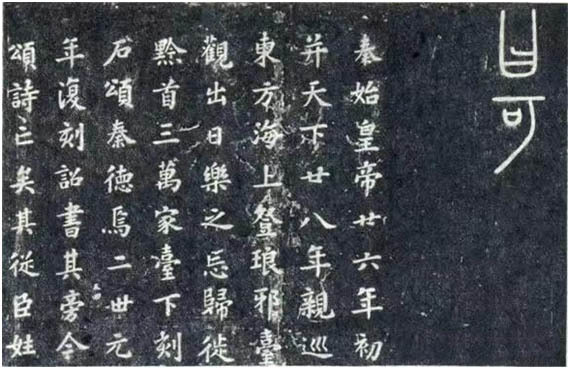 曰可
秦始皇帝廿六年初
并天下廿八年親巡
東方海上登琅邪臺
觀出日樂之忘歸徙
黔首三萬家臺下刻
石頌秦德焉二世元
年復刻詔書其旁今
頌詩亡矣其從臣姓